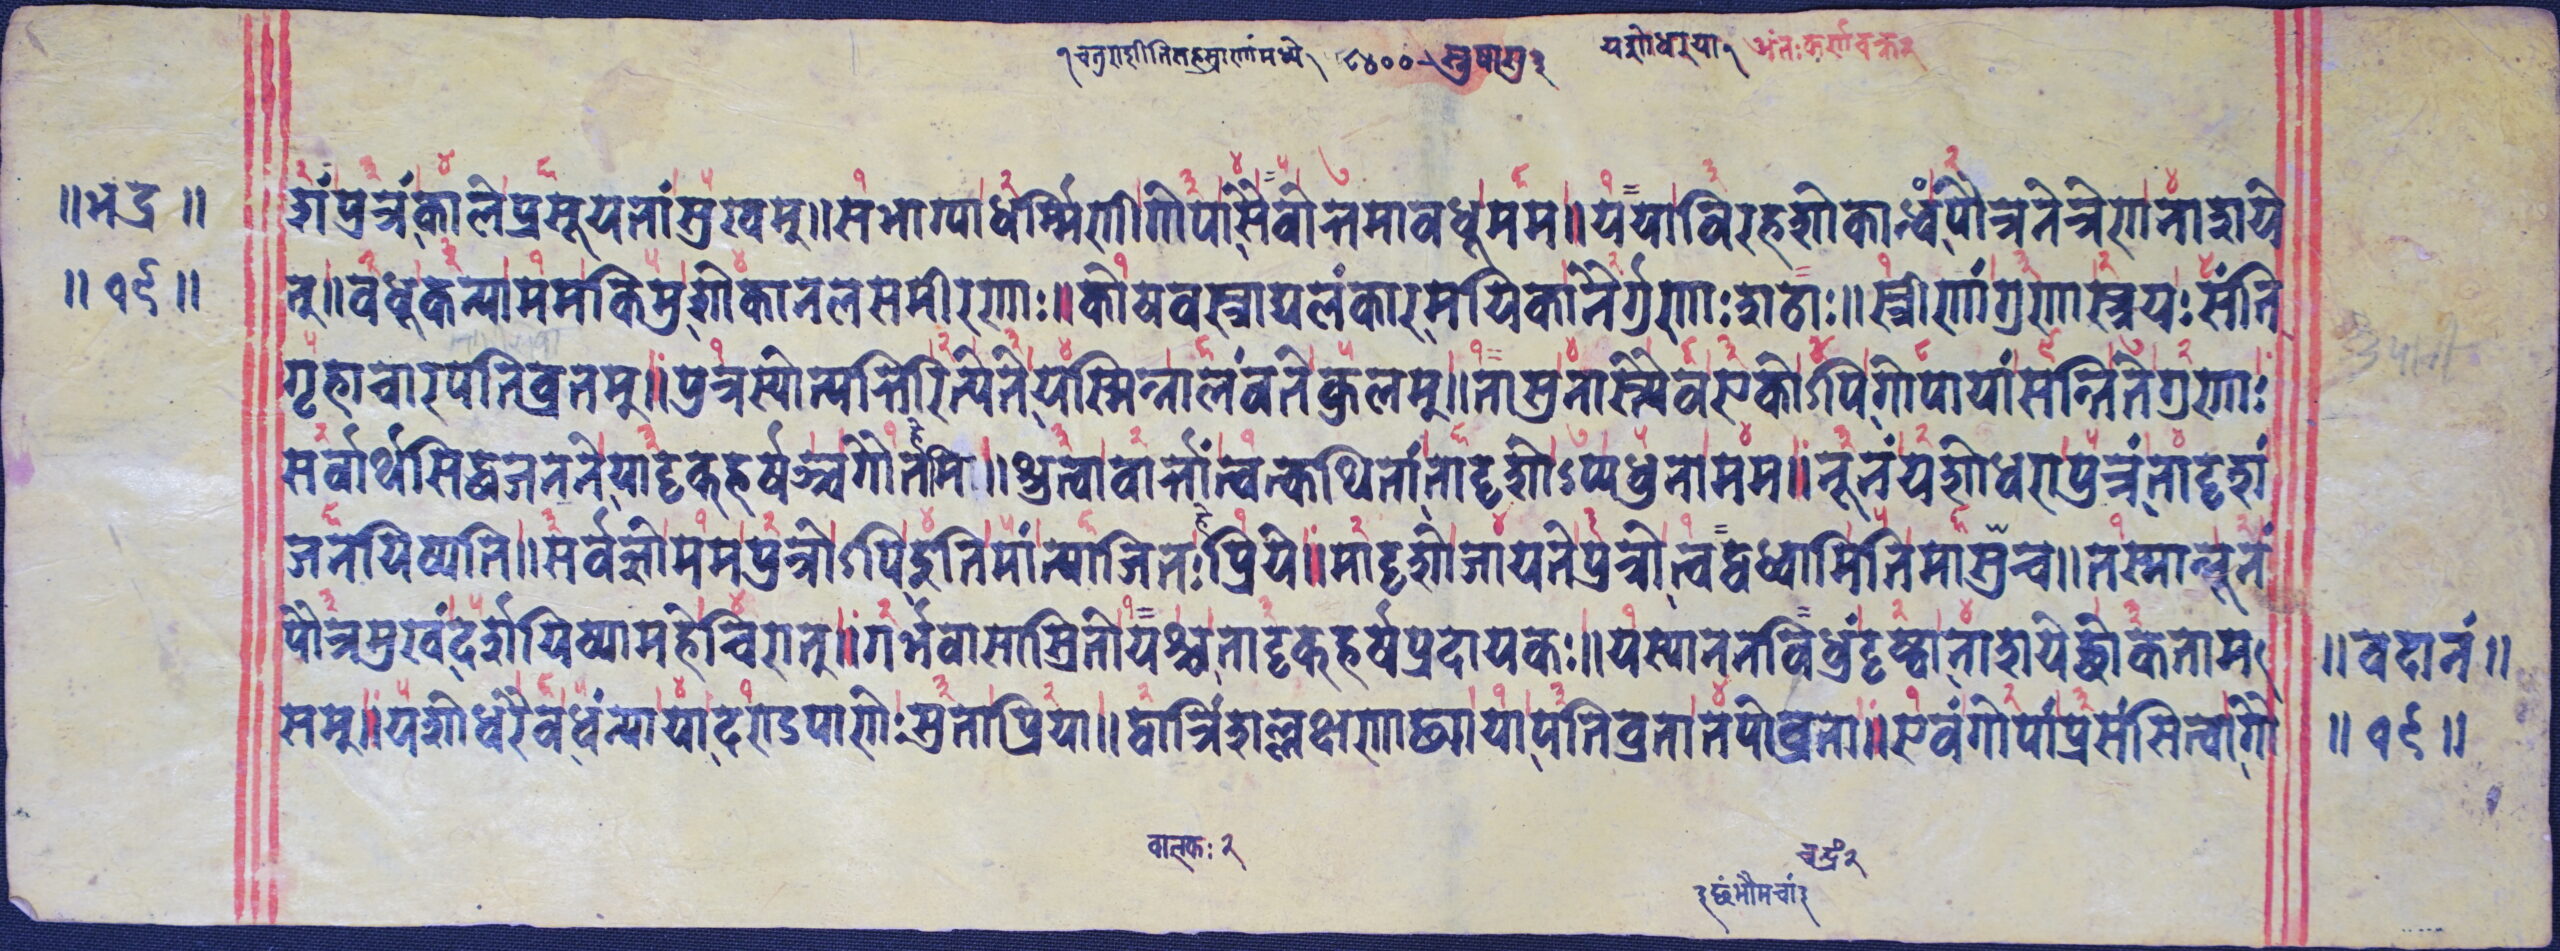 १ चतुराशीतिसहस्राणांमध्ये १ ८४००० स्नुषासु २ यशोधरया १ अंतःकर्णावक्र २
॥ भद्र ॥
॥ १९ ॥
शं पुत्रं काले प्रसूयतां सुखम् ॥ सभाग्या धर्म्मिणी गोपा सैवोत्तमा वधूमम ॥ यया विरहशोकान्ध्वं पौत्रनेत्रेण नाशये
त् ॥ वधूकन्या मम किमु शोकानलसमीरणाः ॥ कोषवस्त्राद्यलंकार मयि कानेर्गुणाः शठाः ॥ स्त्रीणां गुणास्त्रयः संति
गृहाचारपतिव्रतम् ॥ पुत्रस्योत्पत्तिरित्येते यस्मिन्नालंवते कुलम् ॥ तासु नास्त्यैव एकोऽपि गोपायां सन्ति ते गुणाः
सर्वार्थसिद्धजनने यादृक् हर्षञ्च गौतमि ॥ श्रुत्वा वार्त्तां त्वत्कथितां तादृशोऽप्यधुना मम ॥ नूनं यशोधरा पुत्रं तादृशं
जनयिष्यति ॥ सर्वज्ञो मम पुत्रोऽपि द्युतिमां त्याजितः प्रिये ॥ मादृशो जायते पुत्रो त्वद्वध्वामिति मा सुन्च ॥ तस्मान्नूनं
पौत्रमुखं दर्शयिष्यामहे चिरात् ॥ गर्भवासाश्रितो यश्च तादृक् हर्षप्रदायकः ॥ यस्याननविधुं दृष्ट्वा नाशयेछोकताम
समु ॥ यशोधरैव धंन्या या दण्डपाणेः सुता प्रिया ॥ द्वात्रिंशल्लक्षणाछ्या या पतिव्रता तपोव्रता ॥ एवं गोपां प्रसंसित्वा गौ
॥ वदानं ॥
॥ १९ ॥
वालकः २
चन्द्रं २